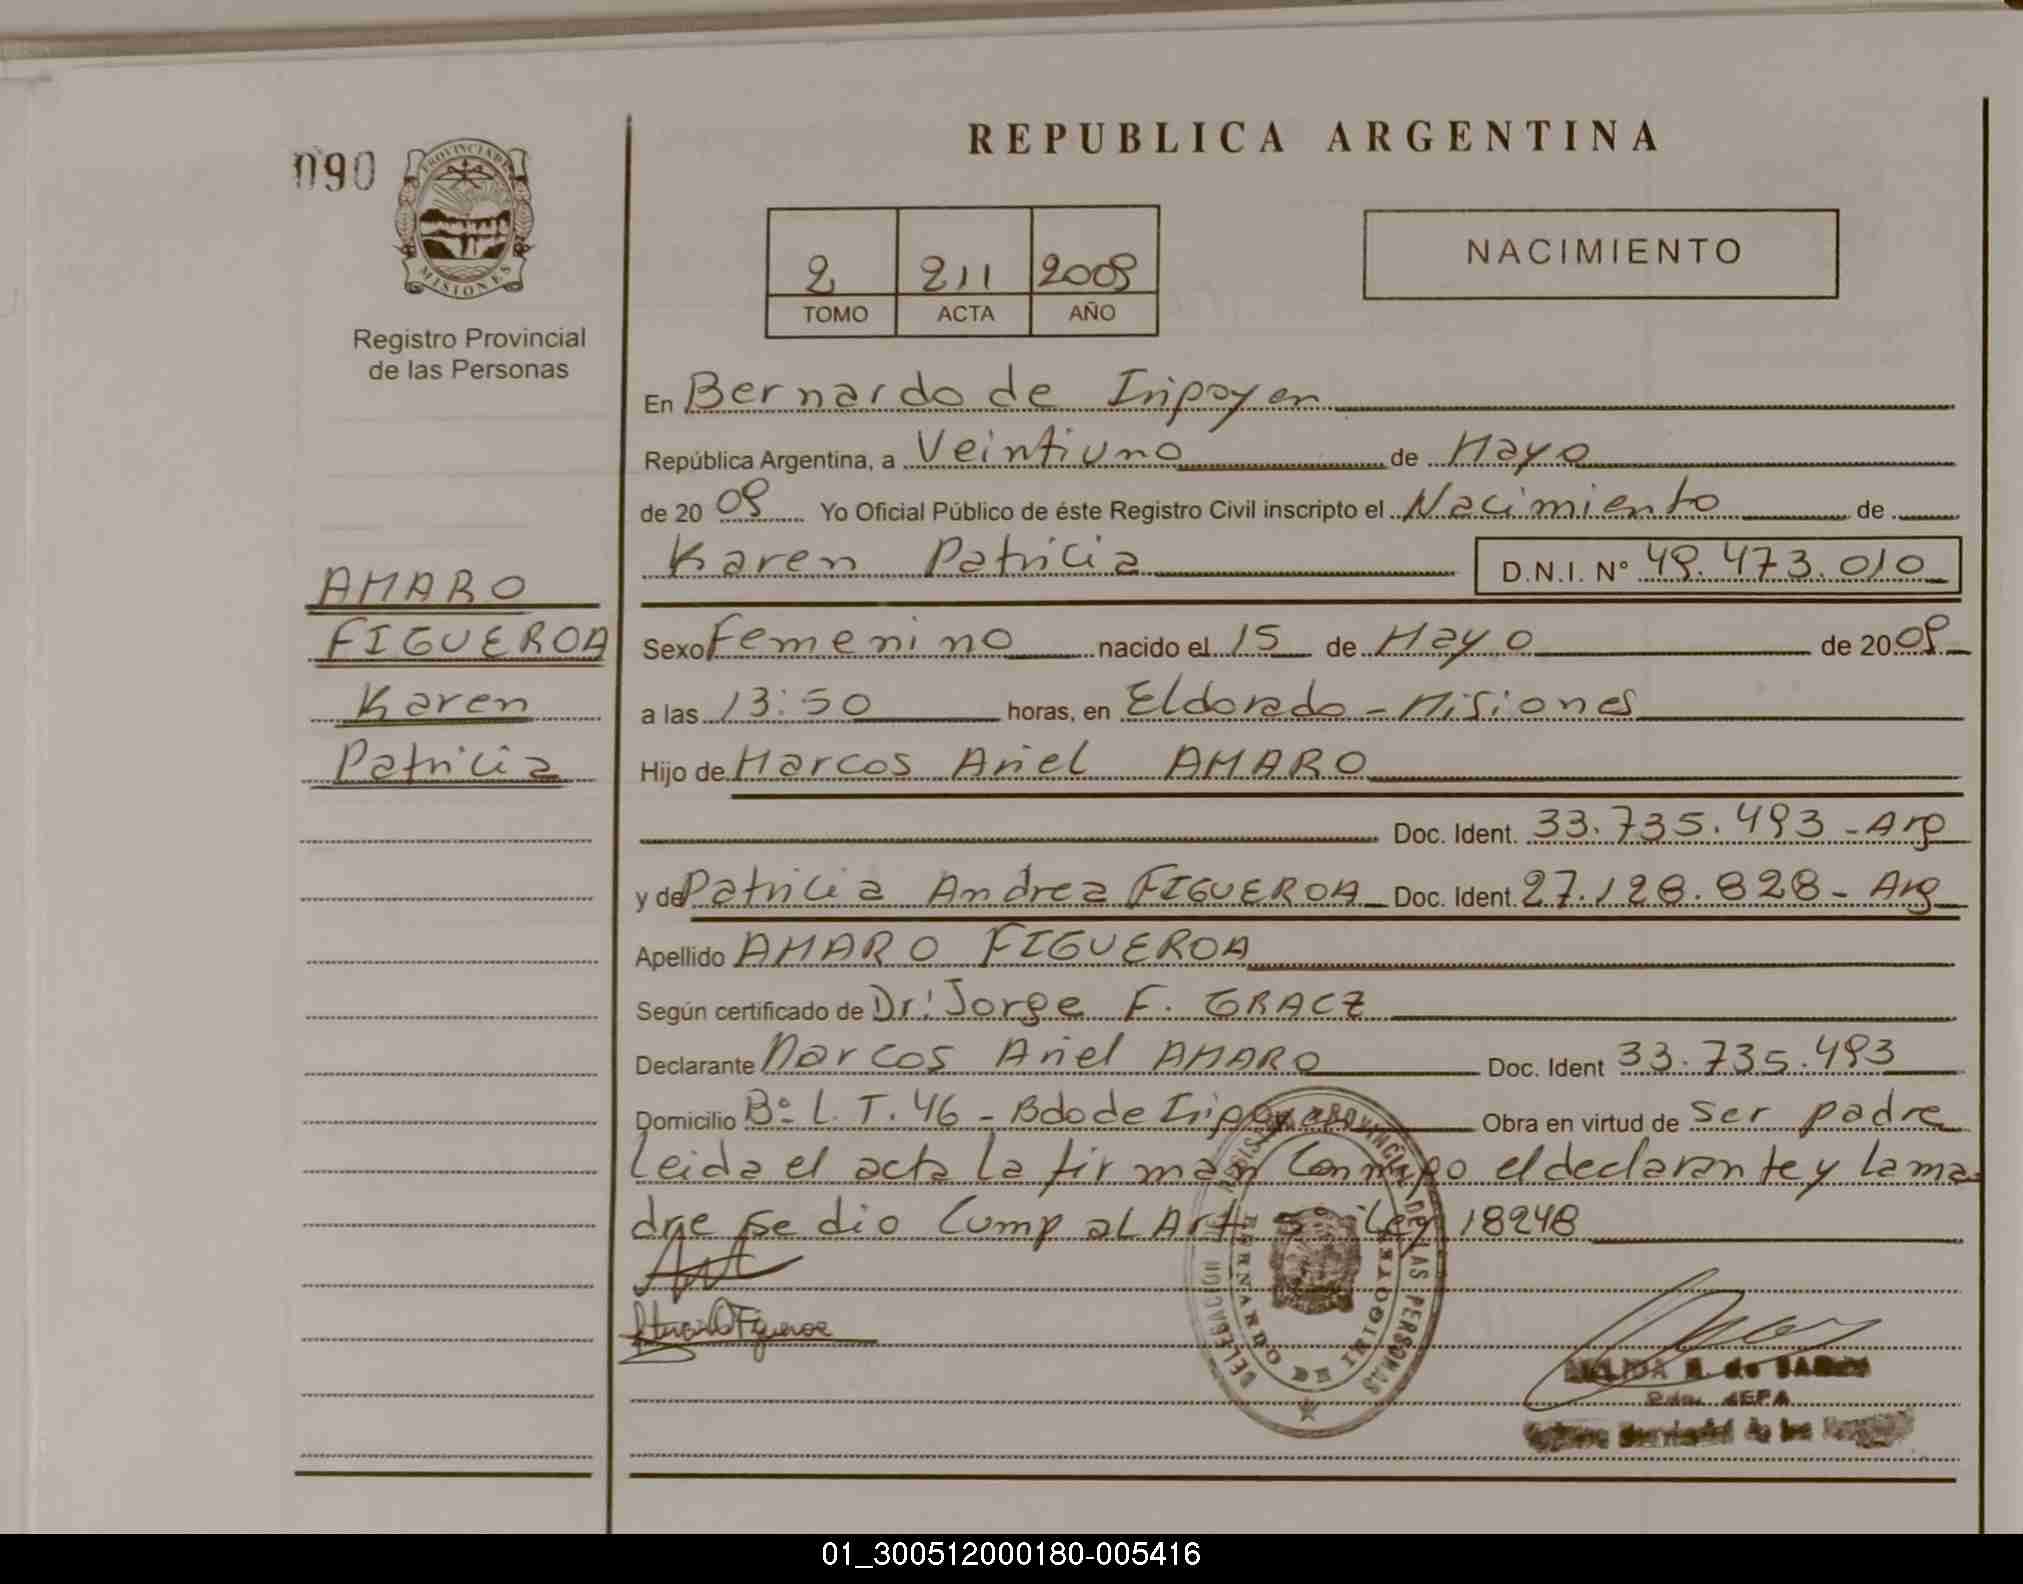 090
PROVINCIA DE
MISIONES
Registro Provincial
de las Personas
AMARO
FIGUEROA
Karen
Patricia
REPUBLICA ARGENTINA
2 211 2009
TOMO ACTA AÑO
NACIMIENTO
En Bernardo de Irigoyen
República Argentina, a Veintiuno de Mayo
de 20 09 Yo Oficial Público de éste Registro Civil inscripto el Nacimiento de
Karen Patricia D.N.I. N° 49.473.010
Sexo Femenino nacido el 15 de Mayo de 20 09
a las 13:50 horas, en Eldorado - Misiones
Hijo de Marcos Ariel AMARO
Doc. Ident. 33.735.493 - Arg
y de Patricia Andrea FIGUEROA Doc. Ident. 27.128.828 - Arg
Apellido AMARO FIGUEROA
Según certificado de Dr: Jorge F. GRACZ
Declarante Marcos Ariel AMARO Doc. Ident 33.735.493
Domicilio Bº L. T. 46 - Bdo de Irigoyen Obra en virtud de ser padre
Leida el acta la firman Conmigo el declarante y la ma
dre se dio Cump al Art 5º Ley 18248
Figueroa
DELEGACION REGISTRO PROVINCIAL DE LAS PERSONAS
BERNARDO DE IRIGOYEN
01_300512000180-005416